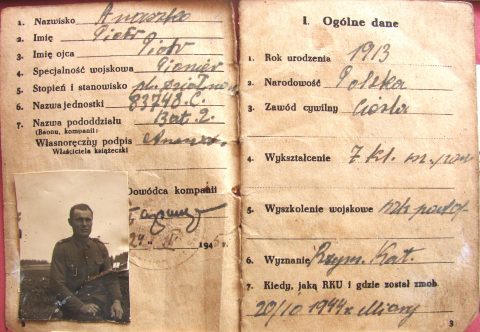 1. Nazwisko Anaszko
2. Imię Piotr
3. Imię ojca Piotr
4. Specjalność wojskowa Pionier
5. Stopień i stanowisko
6. Nazwa jednostki 83748.C.
7. Nazwa pododdziału Bat. 2.
(Baonu, kompanii)
Własnoręczny podpis
Właściciela książeczki
Dowódca kompanii
194 r.
I. Ogólne dane
1. Rok urodzenia 1913
2. Narodowość Polska
3. Zawód cywilny Cieśla
4. Wykształcenie 7 kl.
5. Wyszkolenie wojskowe
6. Wyznanie Rzym. Kat.
7. Kiedy, jaką RKU i gdzie został zmob.
20/10 1944 r.
3